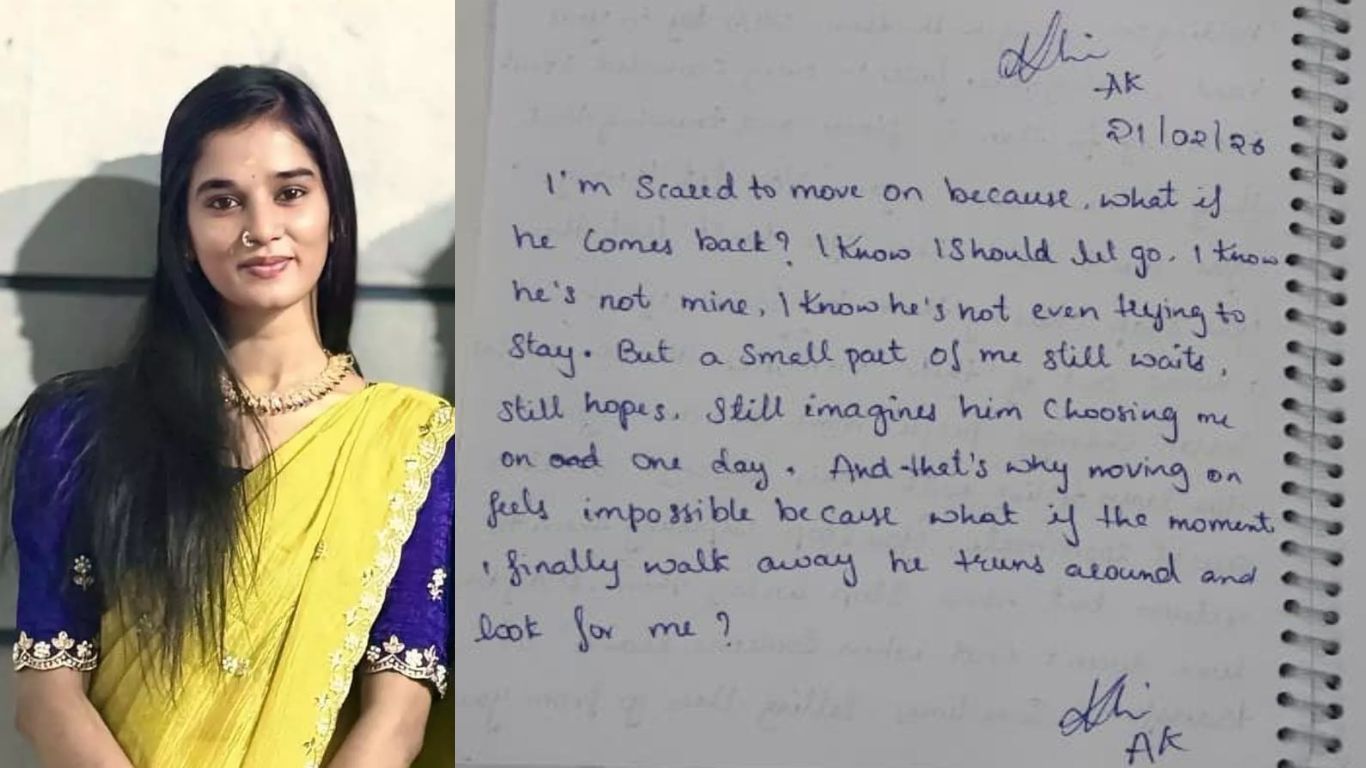 AK
21/02/26
I'm Scared to move on because, what if
he comes back? I know I should let go. I know
he's not mine, I know he's not even trying to
stay. But a small part of me still waits,
still hopes. Still imagines him choosing me
on one day. And that's why moving on
feels impossible because what if the moment
I finally walk away he truns around and
look for me?
AK